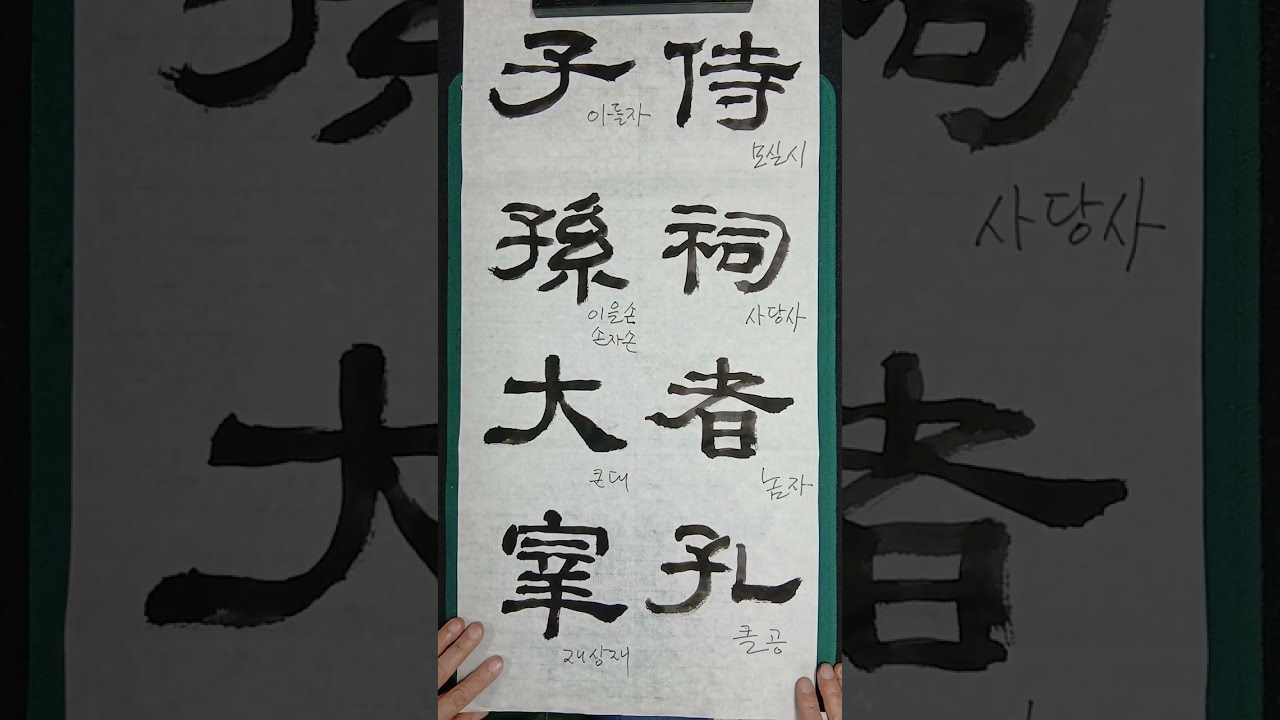 侍
모실시
祠
사당사
者
놈자
孔
클공
子
아들자
孫
이을손
손자손
大
큰대
宰
재상재